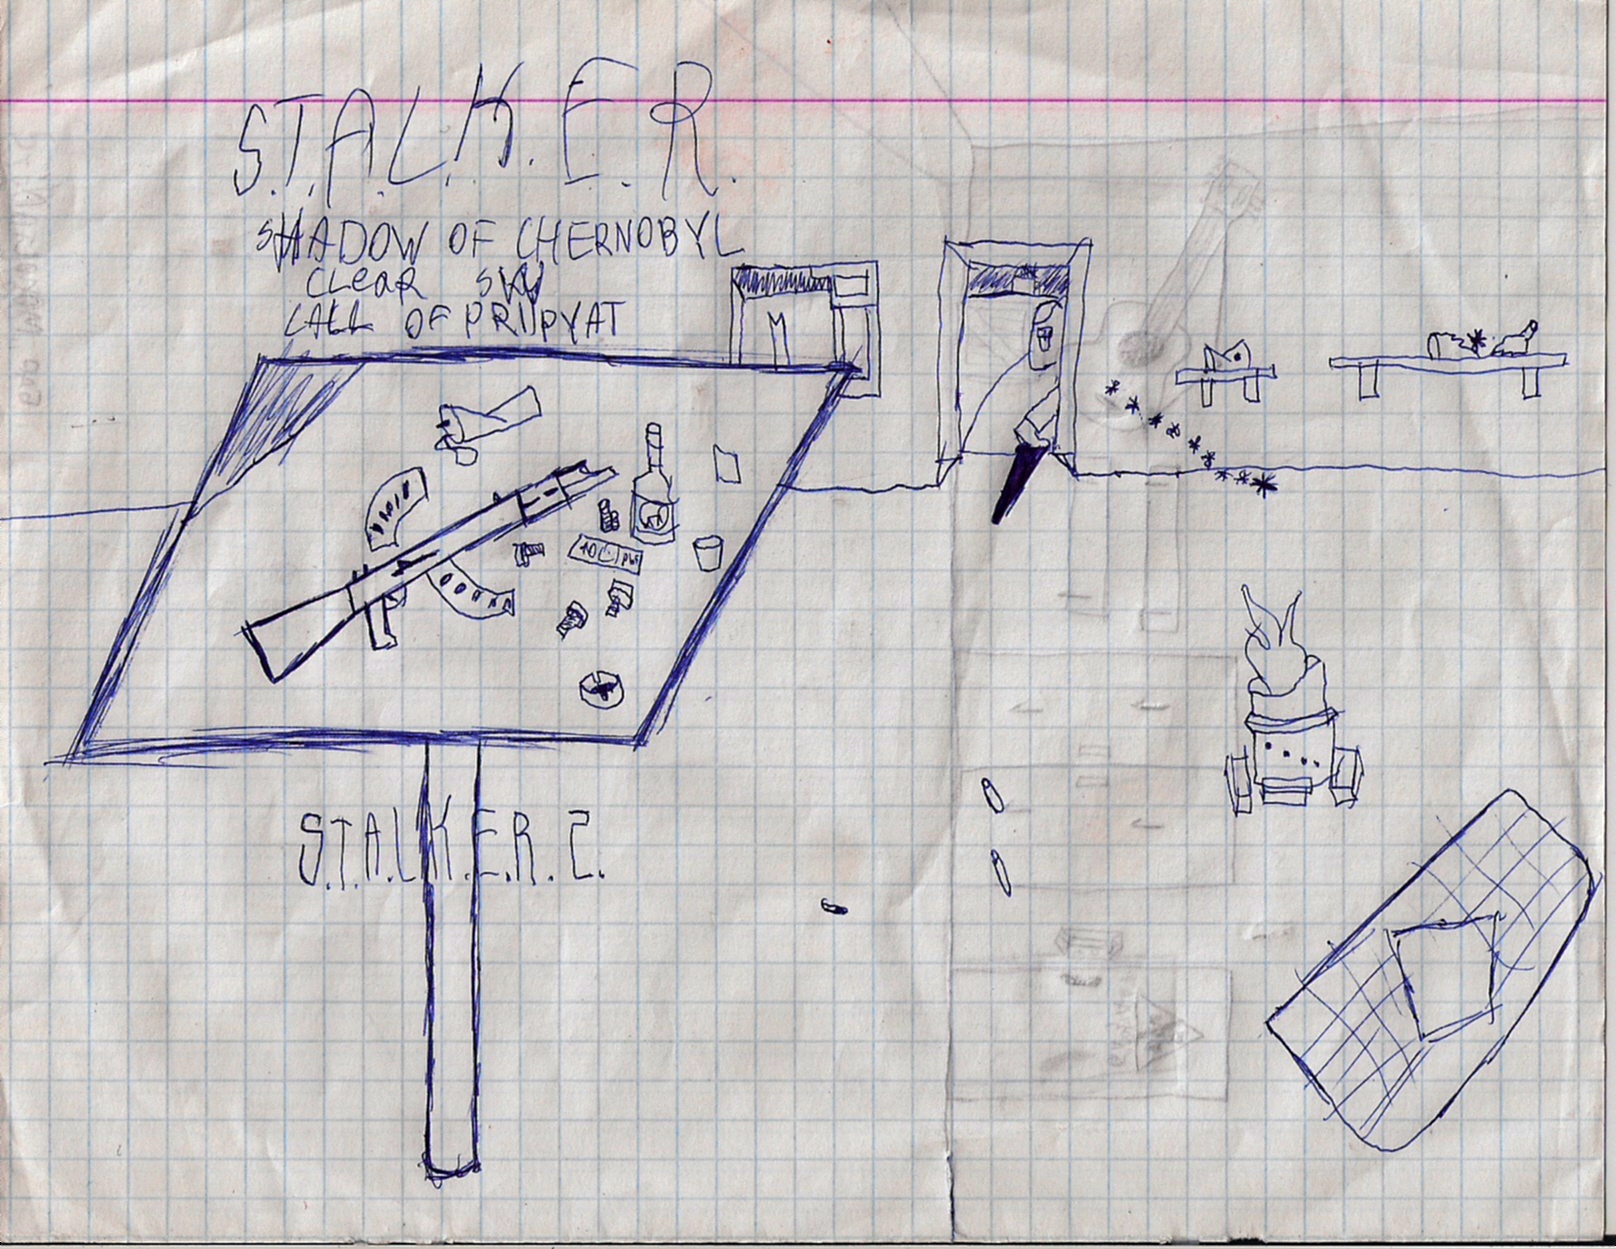 S.T.A.L.K.E.R.
SHADOW OF CHERNOBYL
CLEAR SKY
CALL OF PRIPYAT
M
S.T.A.L.K.E.R. 2.